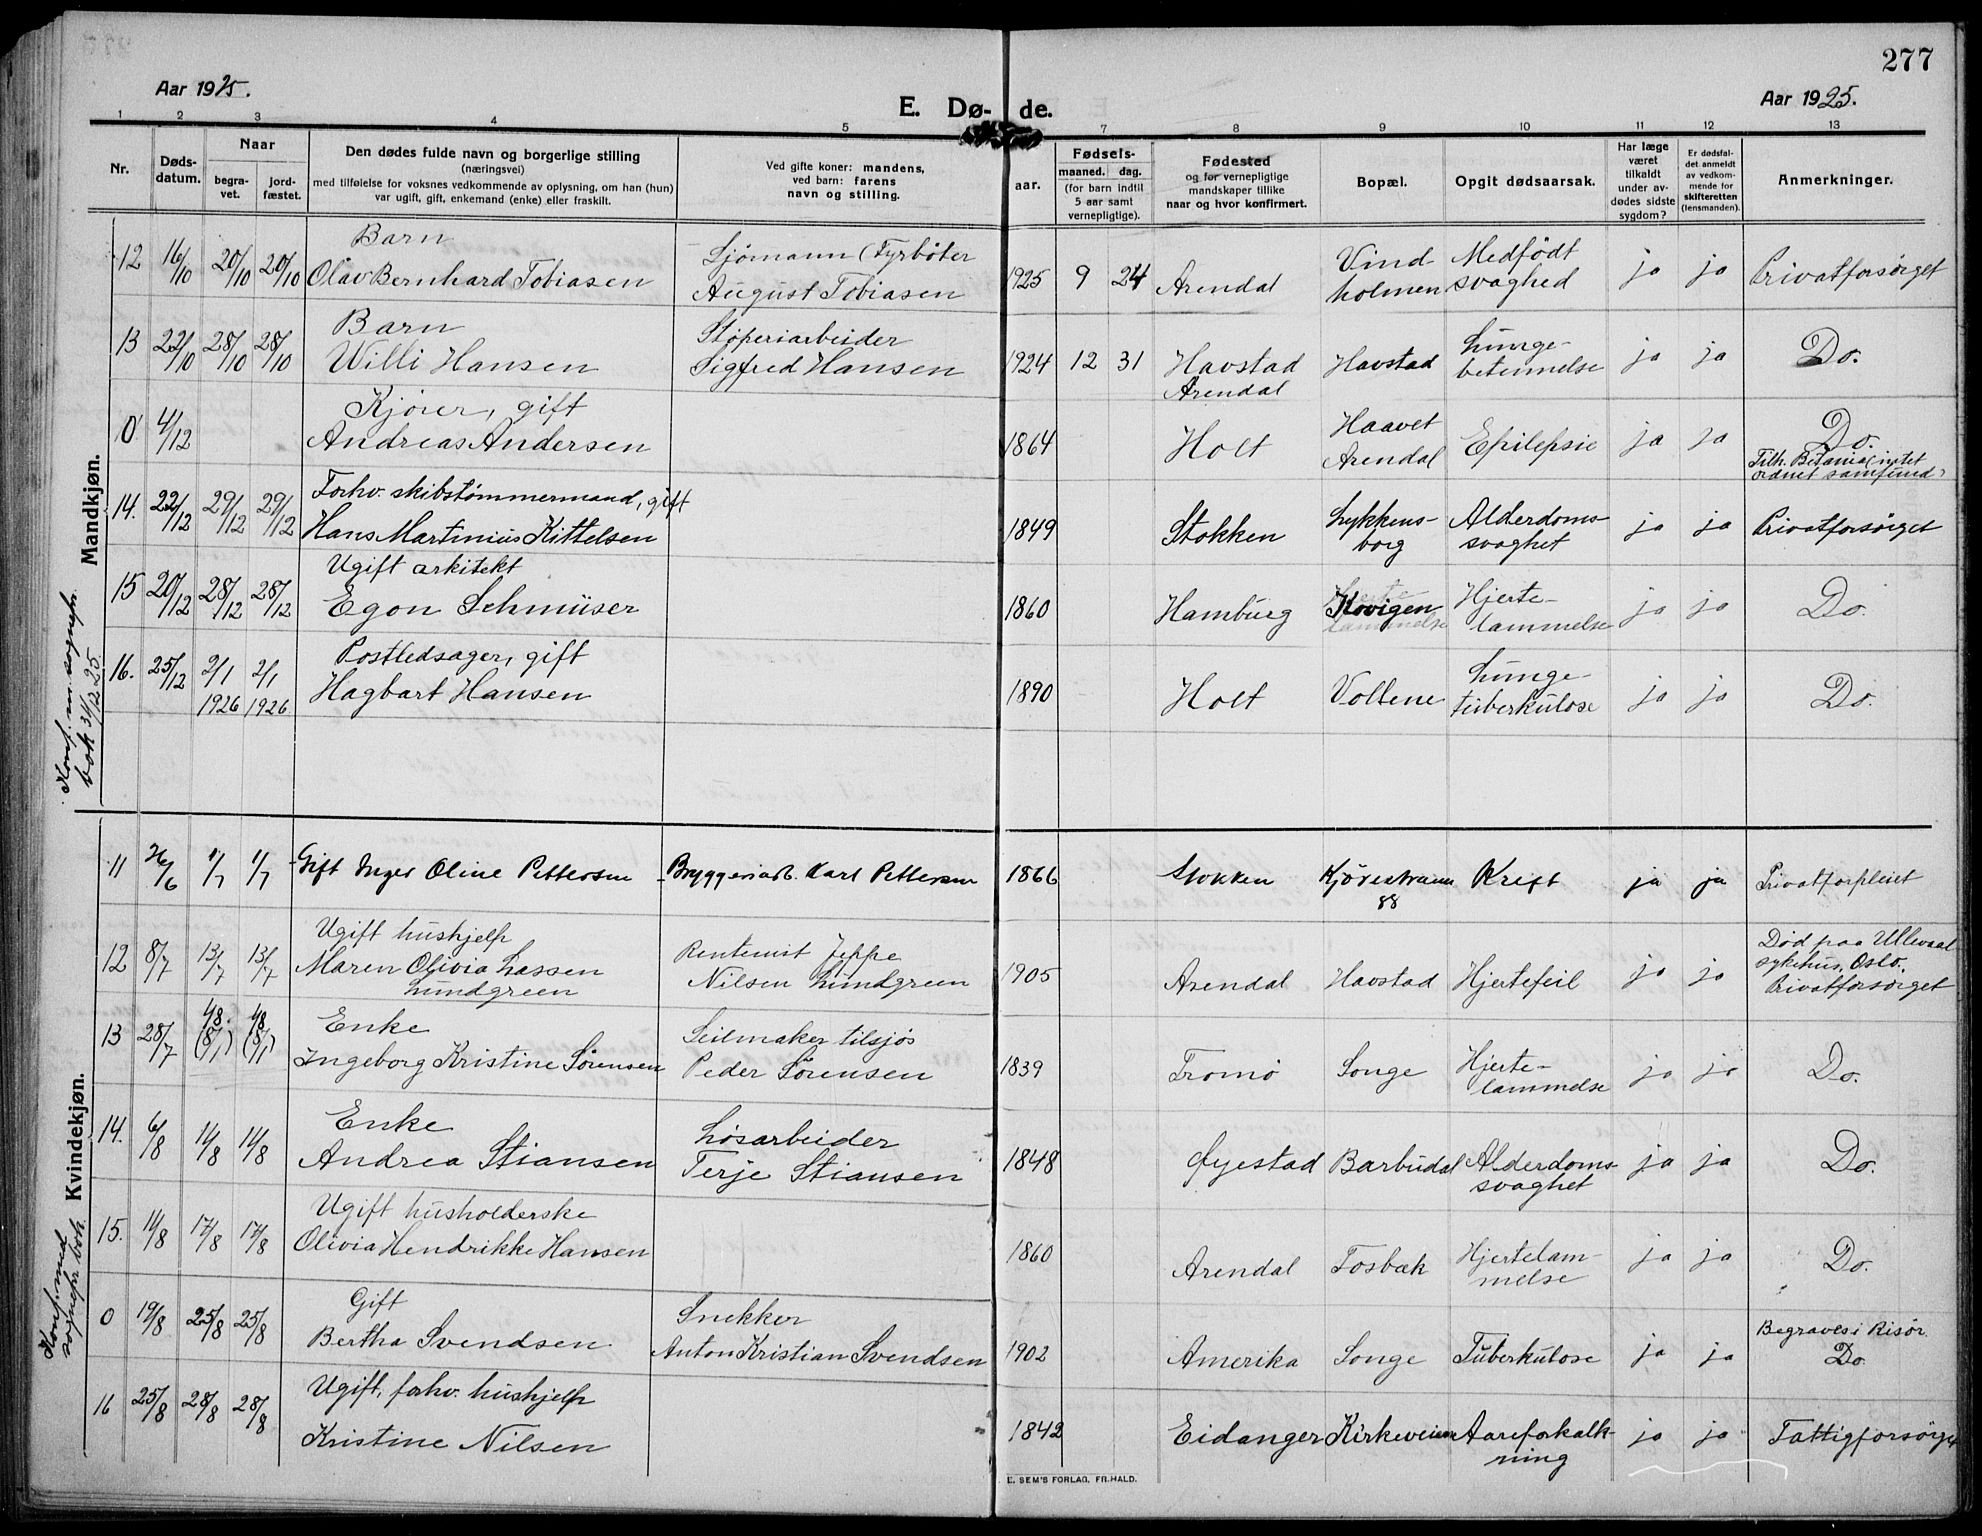 277
Aar 1925.
E. Dø- de.
Aar 1925.
1 2 3 4 5 7 8 9 10 11 12 13
Nr.
Døds-
datum.
Naar
begra-
vet.
jord-
fæstet.
Den dødes fulde navn og borgerlige stilling
(næringsvei)
med tilføielse for voksnes vedkommende av oplysning, om han (hun)
var ugift, gift, enkemand (enke) eller fraskilt.
Ved gifte koner: mandens,
ved barn: farens
navn og stilling.
aar.
Fødsels-
maaned. dag.
(for barn indtil
5 aar samt
vernepligtige).
Fødested
og for vernepligtige
mandskaper tillike
naar og hvor konfirmert.
Bopæl.
Opgit dødsaarsak.
Har læge
været
tilkaldt
under av-
dødes sidste
sygdom?
Er dødsfal-
det anmeldt
av vedkom-
mende for
skifteretten
(lensmanden).
Anmerkninger.
Mandkjøn.
Konf. m. sognepr.
bok 31/12 25.
12 16/10 20/10 20/10 Barn
Olav Bernhard Tobiasen
Sjömann (Fyrböter
August Tobiasen
1925 9 24 Arendal
Vind
holmen
Medfödt
svaghed
ja ja Privatforsörget
13 22/10 28/10 28/10 Barn
Willi Hansen
Stöperiarbeider
Sigfred Hansen
1924 12 31 Havstad
Arendal
Havstad
Lunge-
betennelse
ja ja Do.
0 4/12 Kjörer, gift
Andreas Andersen
1864 Holt
Haavet
Arendal
Epilepsie
ja ja Do.
Tilh. Betania (intet
ordnet samfund)
14. 22/12 29/12 29/12 Forhv. skibstømmermand, gift
Hans Martinius Kittelsen
1849 Stokken
Lykkens-
borg
Alderdoms-
svaghet
ja ja Privatforsörget
15 20/12 28/12 28/12 Ugift arkitekt
Egon Schmüser
1860 Hamburg Kovigen
Hjerte-
lammelse
ja ja Do.
16. 25/12 2/1 1926 2/1 1926. Postledsager, gift
Hagbart Hansen
1890 Holt Voltene
Lunge-
tuberkulose
ja ja Do.
Kvindekjøn.
Konf. med
sognepr. bok.
11 26/6 1/7 1/7 Gift Inger Oline Pettersen Bryggeriarb. Karl Pettersen
1866 Stokken Kjörestraum
88
Kreft ja ja Privatforpleiet
12 8/7 13/7 13/7 Ugift hushjelp
Maren Olivia Lassen
Lundgreen
Rentenist Jeppe
Nilsen Lundgreen
1905 Arendal Havstad Hjertefeil ja ja
Död paa Ullevaal
sykehus, Oslo.
Privatforsörget
13 28/7 4/8. (8/1) 4/8 (8/1) Enke
Ingeborg Kristine Sörensen
Seilmaker tilsjös
Peder Sörensen
1839 Tromö Songe
Hjerte-
lammelse
ja ja Do.
14. 6/8 11/8 11/8 Enke
Andrea Stiansen
Lösarbeider
Terje Stiansen
1848 Øyestad Barbudal
Alderdoms-
svaghet
ja ja Do.
15. 11/8 17/8 17/8 Ugift husholderske
Olivia Hendrikke Hansen
1860 Arendal Fosbæk
Hjertelam-
melse
ja ja Do.
0 19/8 25/8 25/8 Gift
Bertha Svendsen
Snekker
Anton Kristian Svendsen
1902 Amerika Songe Tuberkulose ja ja
Begraves i Risör.
Do.
16 25/8 28/8 28/8 Ugift, forhv. hushjelp
Kristine Nilsen
1842 Eidanger Kirkeveien
Aareforkalk-
ning
ja ja Fattigforsörget
E. SEM'S FORLAG, FR.HALD.